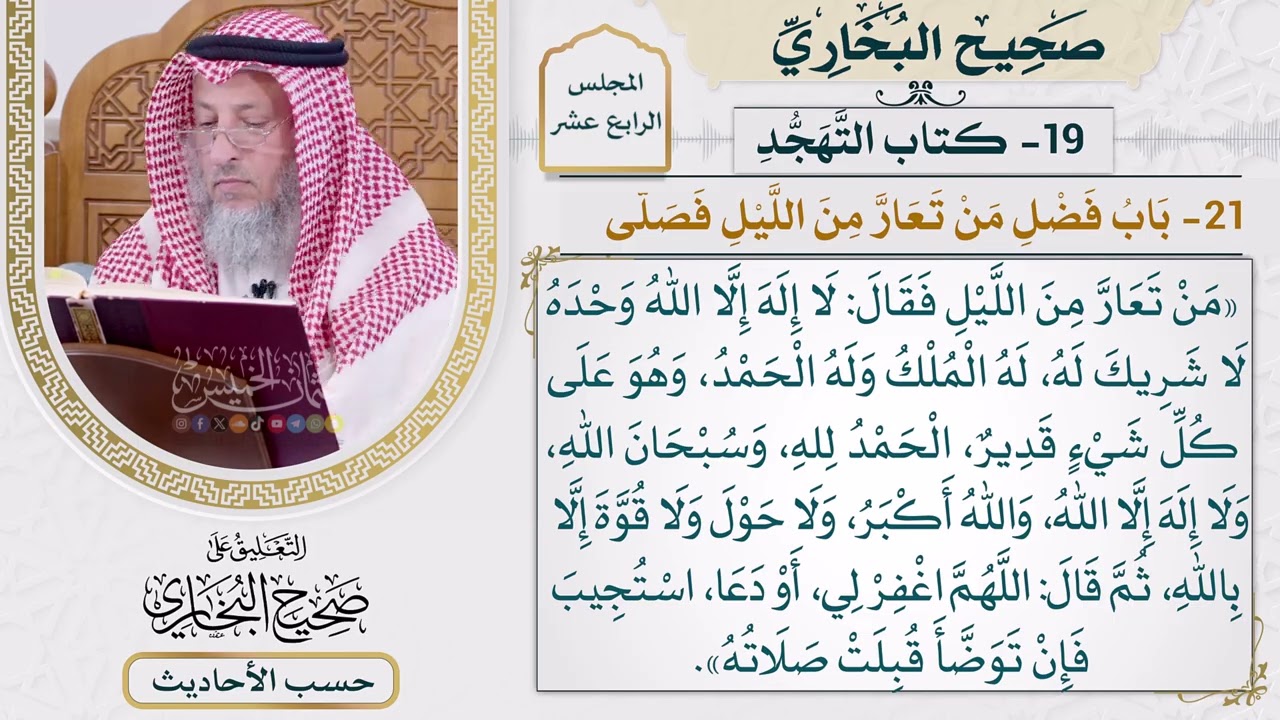 صَحِيح البُخَارِيِّ
المجلس
الرابع عشر
19- كتاب التَّهَجُّدِ
21- بَابُ فَضْلِ مَنْ تَعَارَّ مِنَ اللَّيْلِ فَصَلَّى
«مَنْ تَعَارَّ مِنَ اللَّيْلِ فَقَالَ: لَا إِلَهَ إِلَّا اللهُ وَحْدَهُ
لَا شَرِيكَ لَهُ، لَهُ الْمُلْكُ وَلَهُ الْحَمْدُ، وَهُوَ عَلَى
كُلِّ شَيْءٍ قَدِيرٌ، الْحَمْدُ لِلهِ، وَسُبْحَانَ اللهِ،
وَلَا إِلَهَ إِلَّا اللهُ، وَاللهُ أَكْبَرُ، وَلَا حَوْلَ وَلَا قُوَّةَ إِلَّا
بِاللهِ، ثُمَّ قَالَ: اللَّهُمَّ اغْفِرْ لِي، أَوْ دَعَا، اسْتُجِيبَ
فَإِنْ تَوَضَّأَ قُبِلَتْ صَلَاتُهُ».
عثمان الخميس
التَّعْلِيقُ عَلَى
صَحِيحِ الْبُخَارِي
حسب الأحاديث